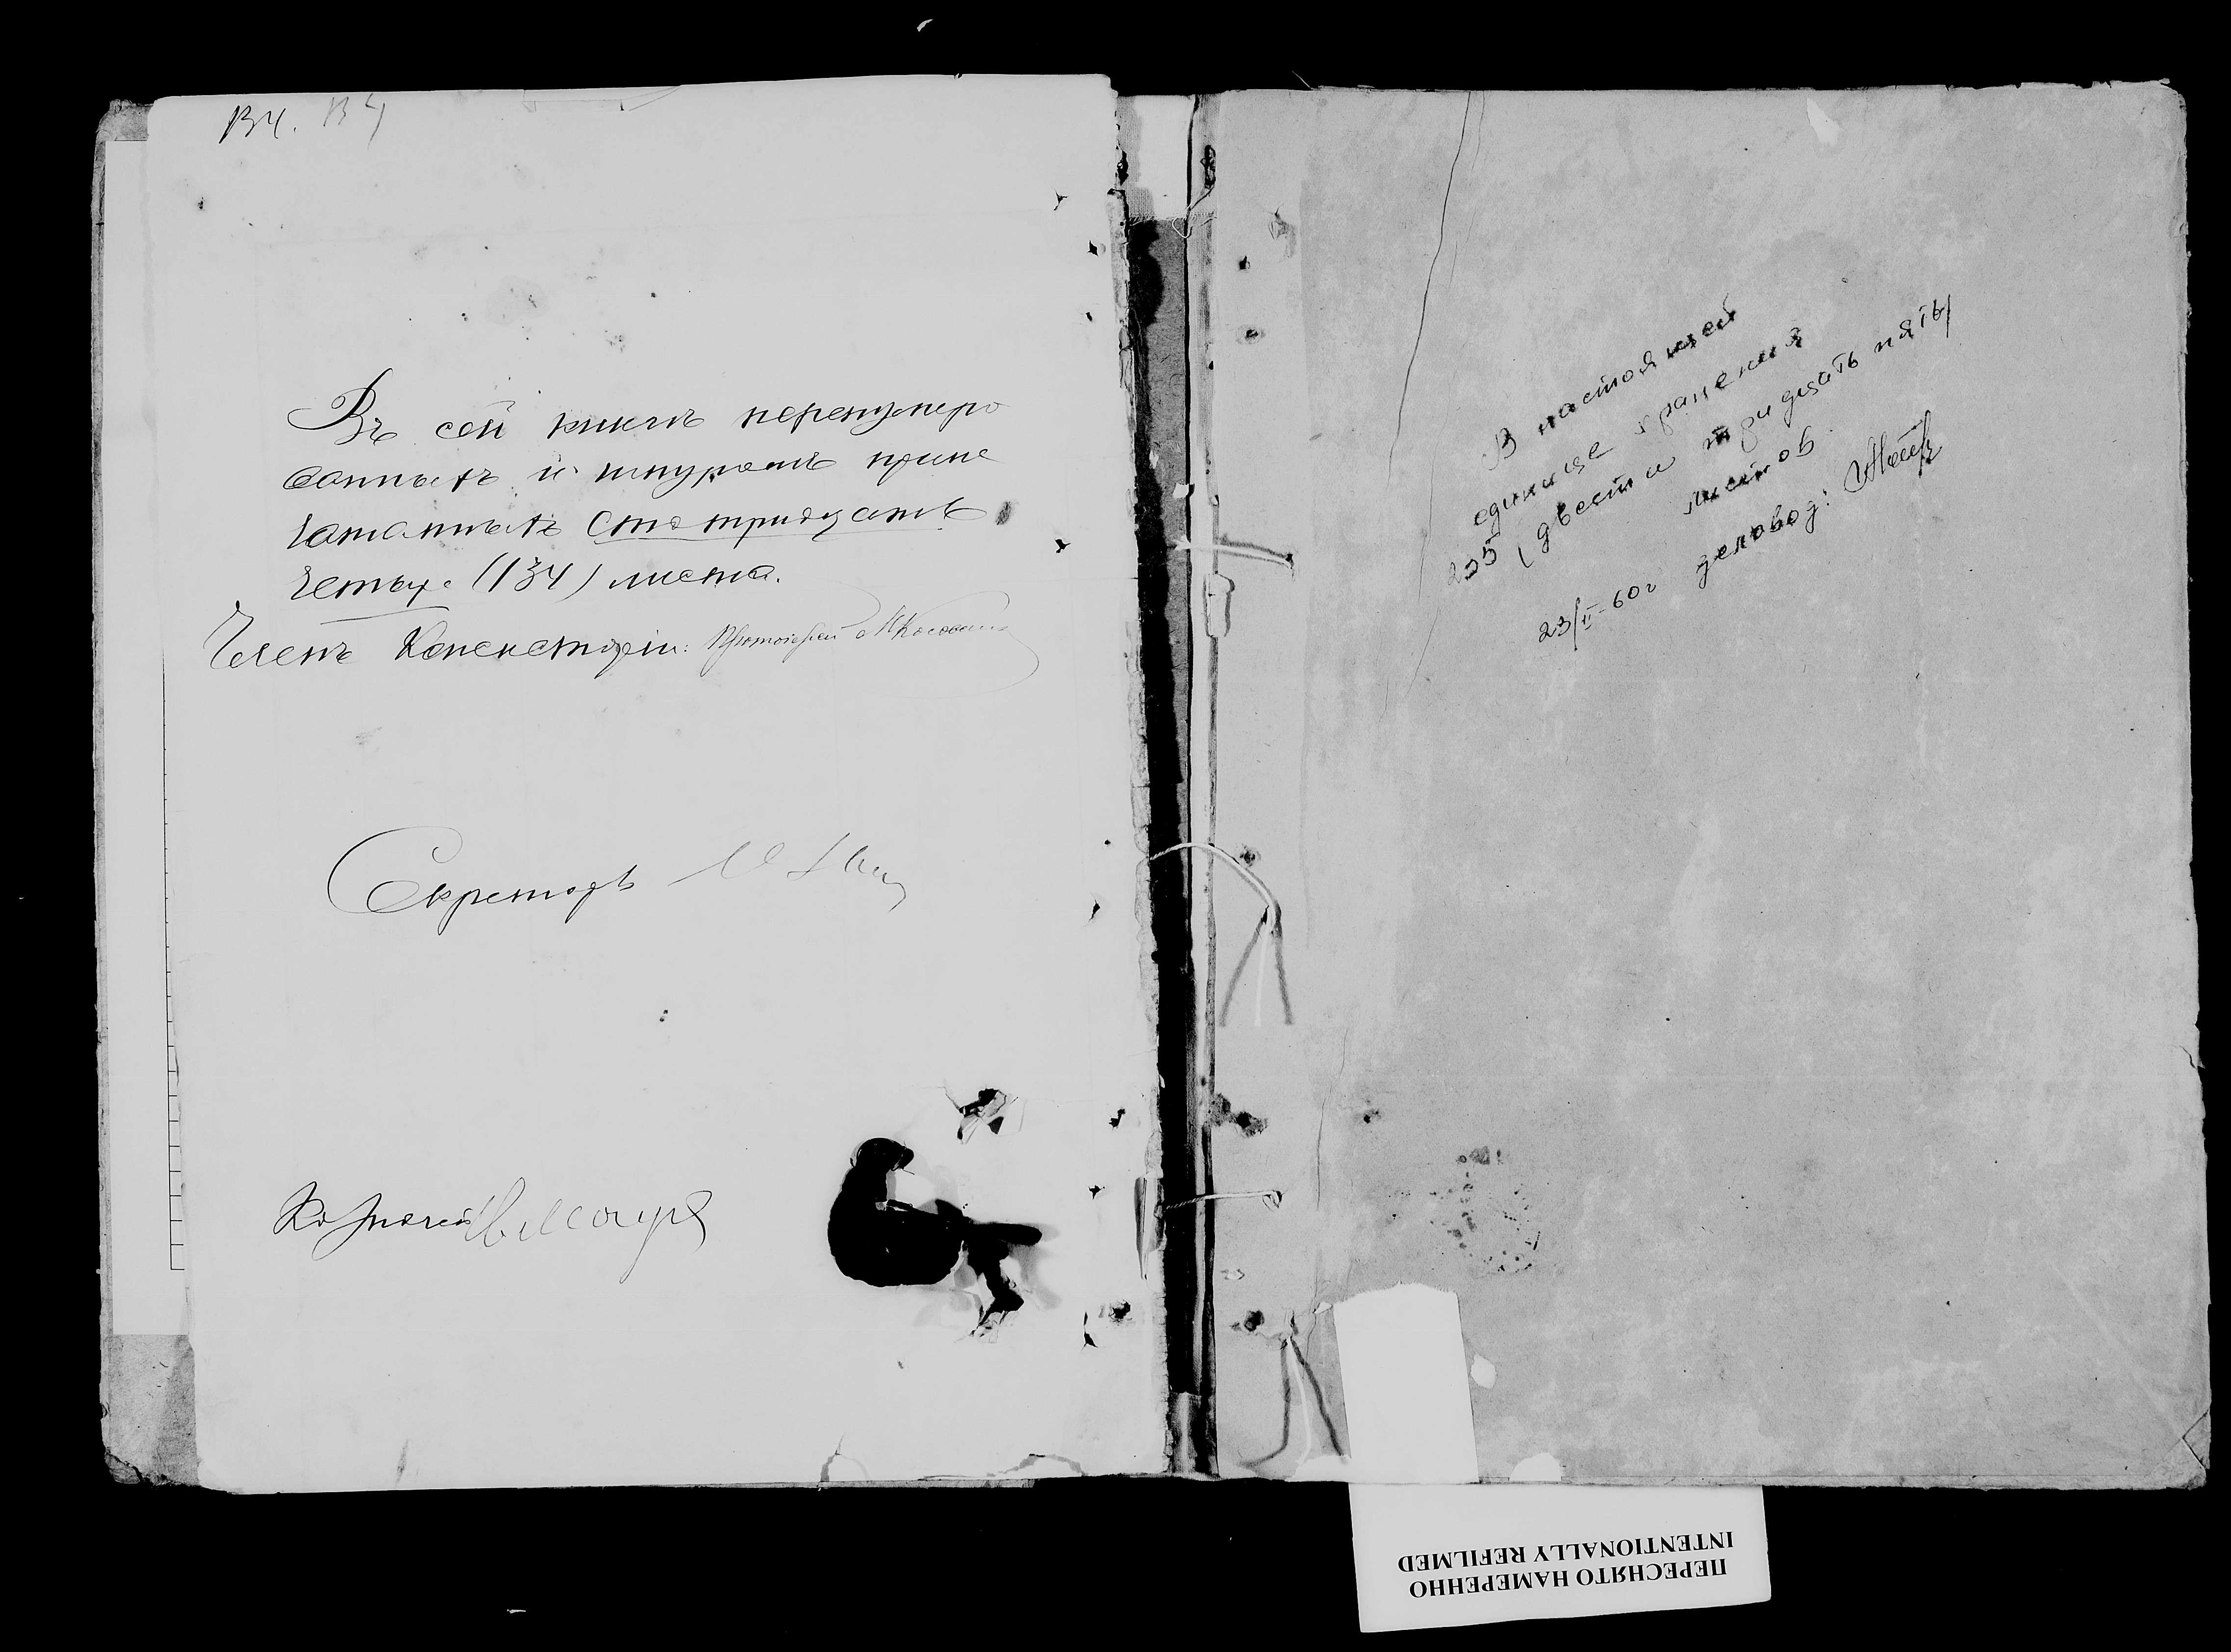 134. 134
Въ сей книгѣ перенумеро
ванныхъ и шнуромъ припе
чатанныхъ сто тридцать
четыре (134) листа.
Членъ Консисторіи: Протоіерей
Секретарь
Казначей
В настоящей
единице хранения
235 (двести тридцать пять)
листов
23/II-60г деловод:
ПЕРЕСНЯТО НАМЕРЕННО
INTENTIONALLY REFILMED